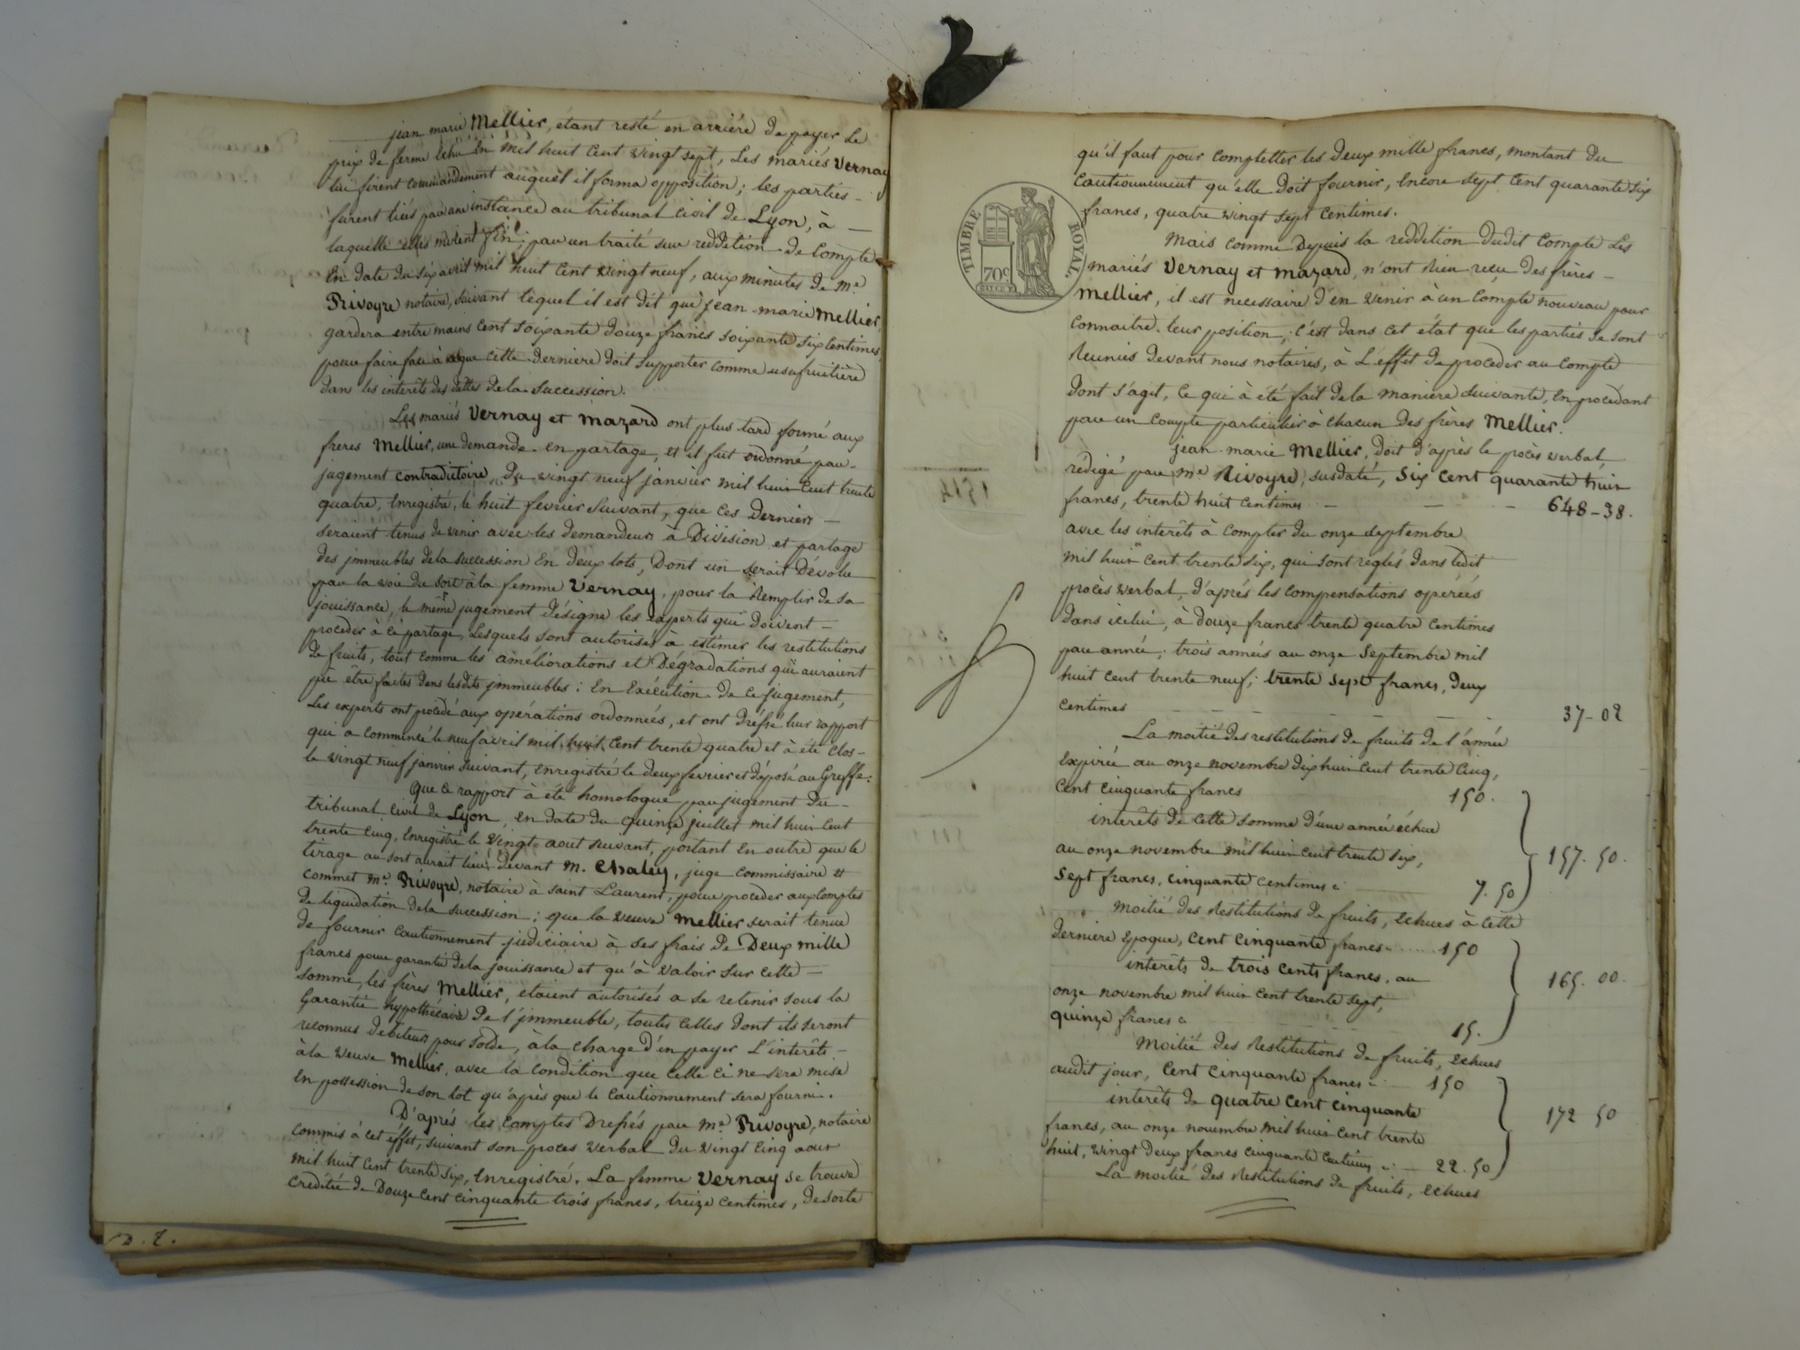 jean marie Mellier, étant resté en arriére de payer Le
prix de ferme échu en mil huit cent vingt sept, Les mariés Vernay
lui firent commandement auquel il forma opposition; les parties -
furent liées par une instance au tribunal civil de Lyon, à —
laquelle elles mirent fin, par un traité sur reddition de Compte
En date du six avril mil huit cent vingt neuf, aux minutes de Me
Rivoyre notaire, suivant lequel il est dit que jean marie Mellier
gardera entre mains cent soixante douze francs soixante six centimes
pour faire face à ce que cette derniere doit supporter comme usufruitière
dans les interêts des dettes de la succession.
Les mariés Vernay et Mazard ont plus tard formé aux
freres Mellier, une demande en partage, et il fut ordonné par -
jugement contradictoire, du vingt neuf janvier mil huit cent trente
quatre, Enregistré, le huit fevrier suivant, que ces derniers —
seraient tenus de venir avec les demandeurs à Division et partage
des immeubles de la succession En deux lots, Dont un serait Dévolu
par la voie du sort à la femme Vernay, pour la Remplir de sa
jouissance, le même jugement désigne les experts qui doivent —
proceder à ce partage, Lesquels sont autorisés à estimer les restitutions
de fruits, tout comme les améliorations et Dégradations qui auraient
pu être faites dans lesdits immeubles: En Exécution de ce jugement,
Les experts ont procédé aux opérations ordonnées, et ont dréssé leur rapport
qui a commencé le neuf avril mil huit cent trente quatre et à été clos -
le vingt neuf janvier suivant, enregistré le deux fevrier et déposé au Greffe.
Que ce rapport à été homologué par jugement du -
tribunal Civil de Lyon, en date du quinze juillet mil huit cent
trente cinq, Enregistré le Vingt aout suivant, portant En outre que le
tirage au sort aurait lieu, devant M. Chaley, juge commissaire et
commet Me. Rivoyre, notaire à saint Laurent, pour proceder aux comptes
de liquidation de la succession; que la veuve Mellier serait tenue
de fournir cautionnement judiciaire à ses frais de Deux mille
francs pour garantie de la jouissance et qu'à valoir sur cette —
somme, les frères Mellier, etaient autorisés a se retenir sous la
Garantie hypothécaire De l'immeuble, toutes celles dont ils seront
reconnus debiteurs pour solde, à la charge d'en payer L'interêts -
à la veuve Mellier, avec la condition que celle ci ne sera mise
En possession de son lot qu'après que le Cautionnement sera fourni.
D'aprés les comptes Dressés par Me Rivoyre, notaire
commis à cet éffet, suivant son procés verbal du vingt cinq aout
mil huit cent trente six, Enregistré. La femme Vernay se trouve
créditée de Douze cent cinquante trois francs, treize centimes, de sorte
D. L.
TIMBRE ROYAL.
70c
qu'il faut pour completter les deux mille francs, montant du
Cautionnement qu'elle doit fournir, Encore sept cent quarante six
francs, quatre vingt sept centimes.
Mais comme Depuis la reddition dudit Compte Les
mariés Vernay et Mazard, n'ont Rien reçu des frères -
Mellier, il est necessaire d'en venir à un Compte nouveau pour
connaitre leur position; c'est dans cet état que les parties se sont
Reunies devant nous notaires, à L'effet de proceder au Compte
dont s'agit, Ce qui à été fait de la maniere suivante, En procedant
par un Compte particulier à chacun des frères Mellier.
jean marie Mellier, doit d'après le procès verbal
rédigé par Me Rivoyre, susdaté, six cent quarante huit
francs, trente huit centimes — — - 648-38.
avec les interêts à compter du onze septembre
mil huit cent trente six, qui sont reglés dans ledit
procès verbal, d'aprés les compensations opérées
dans icelui, à douze francs trente quatre centimes
par année; trois années au onze septembre mil
huit cent trente neuf; trente sept francs, deux
centimes - - - - - 37-02
La moitié des restitutions de fruits de l'année
Expirée au onze novembre dix huit cent trente cinq,
cent cinquante francs 150.
interêts de cette somme d'une année échue
au onze novembre mil huit cent trente six, 157. 50.
sept francs, cinquante centimes c. 7. 50
moitié des Restitutions de fruits, échues à cette
derniere époque, cent cinquante francs ..... 150
intérêts de trois cents francs, au
165. 00.
onze novembre mil huit cent trente sept,
quinze francs c 15.
Moitié des Restitutions de fruits, echues
audit jour, Cent cinquante francs .. 150
intérêts de quatre cent cinquante 172 50
francs, au onze novembre mil huit cent trente
huit, vingt deux francs cinquante centimes . 22. 50
La moitié des Restitutions de fruits, echues